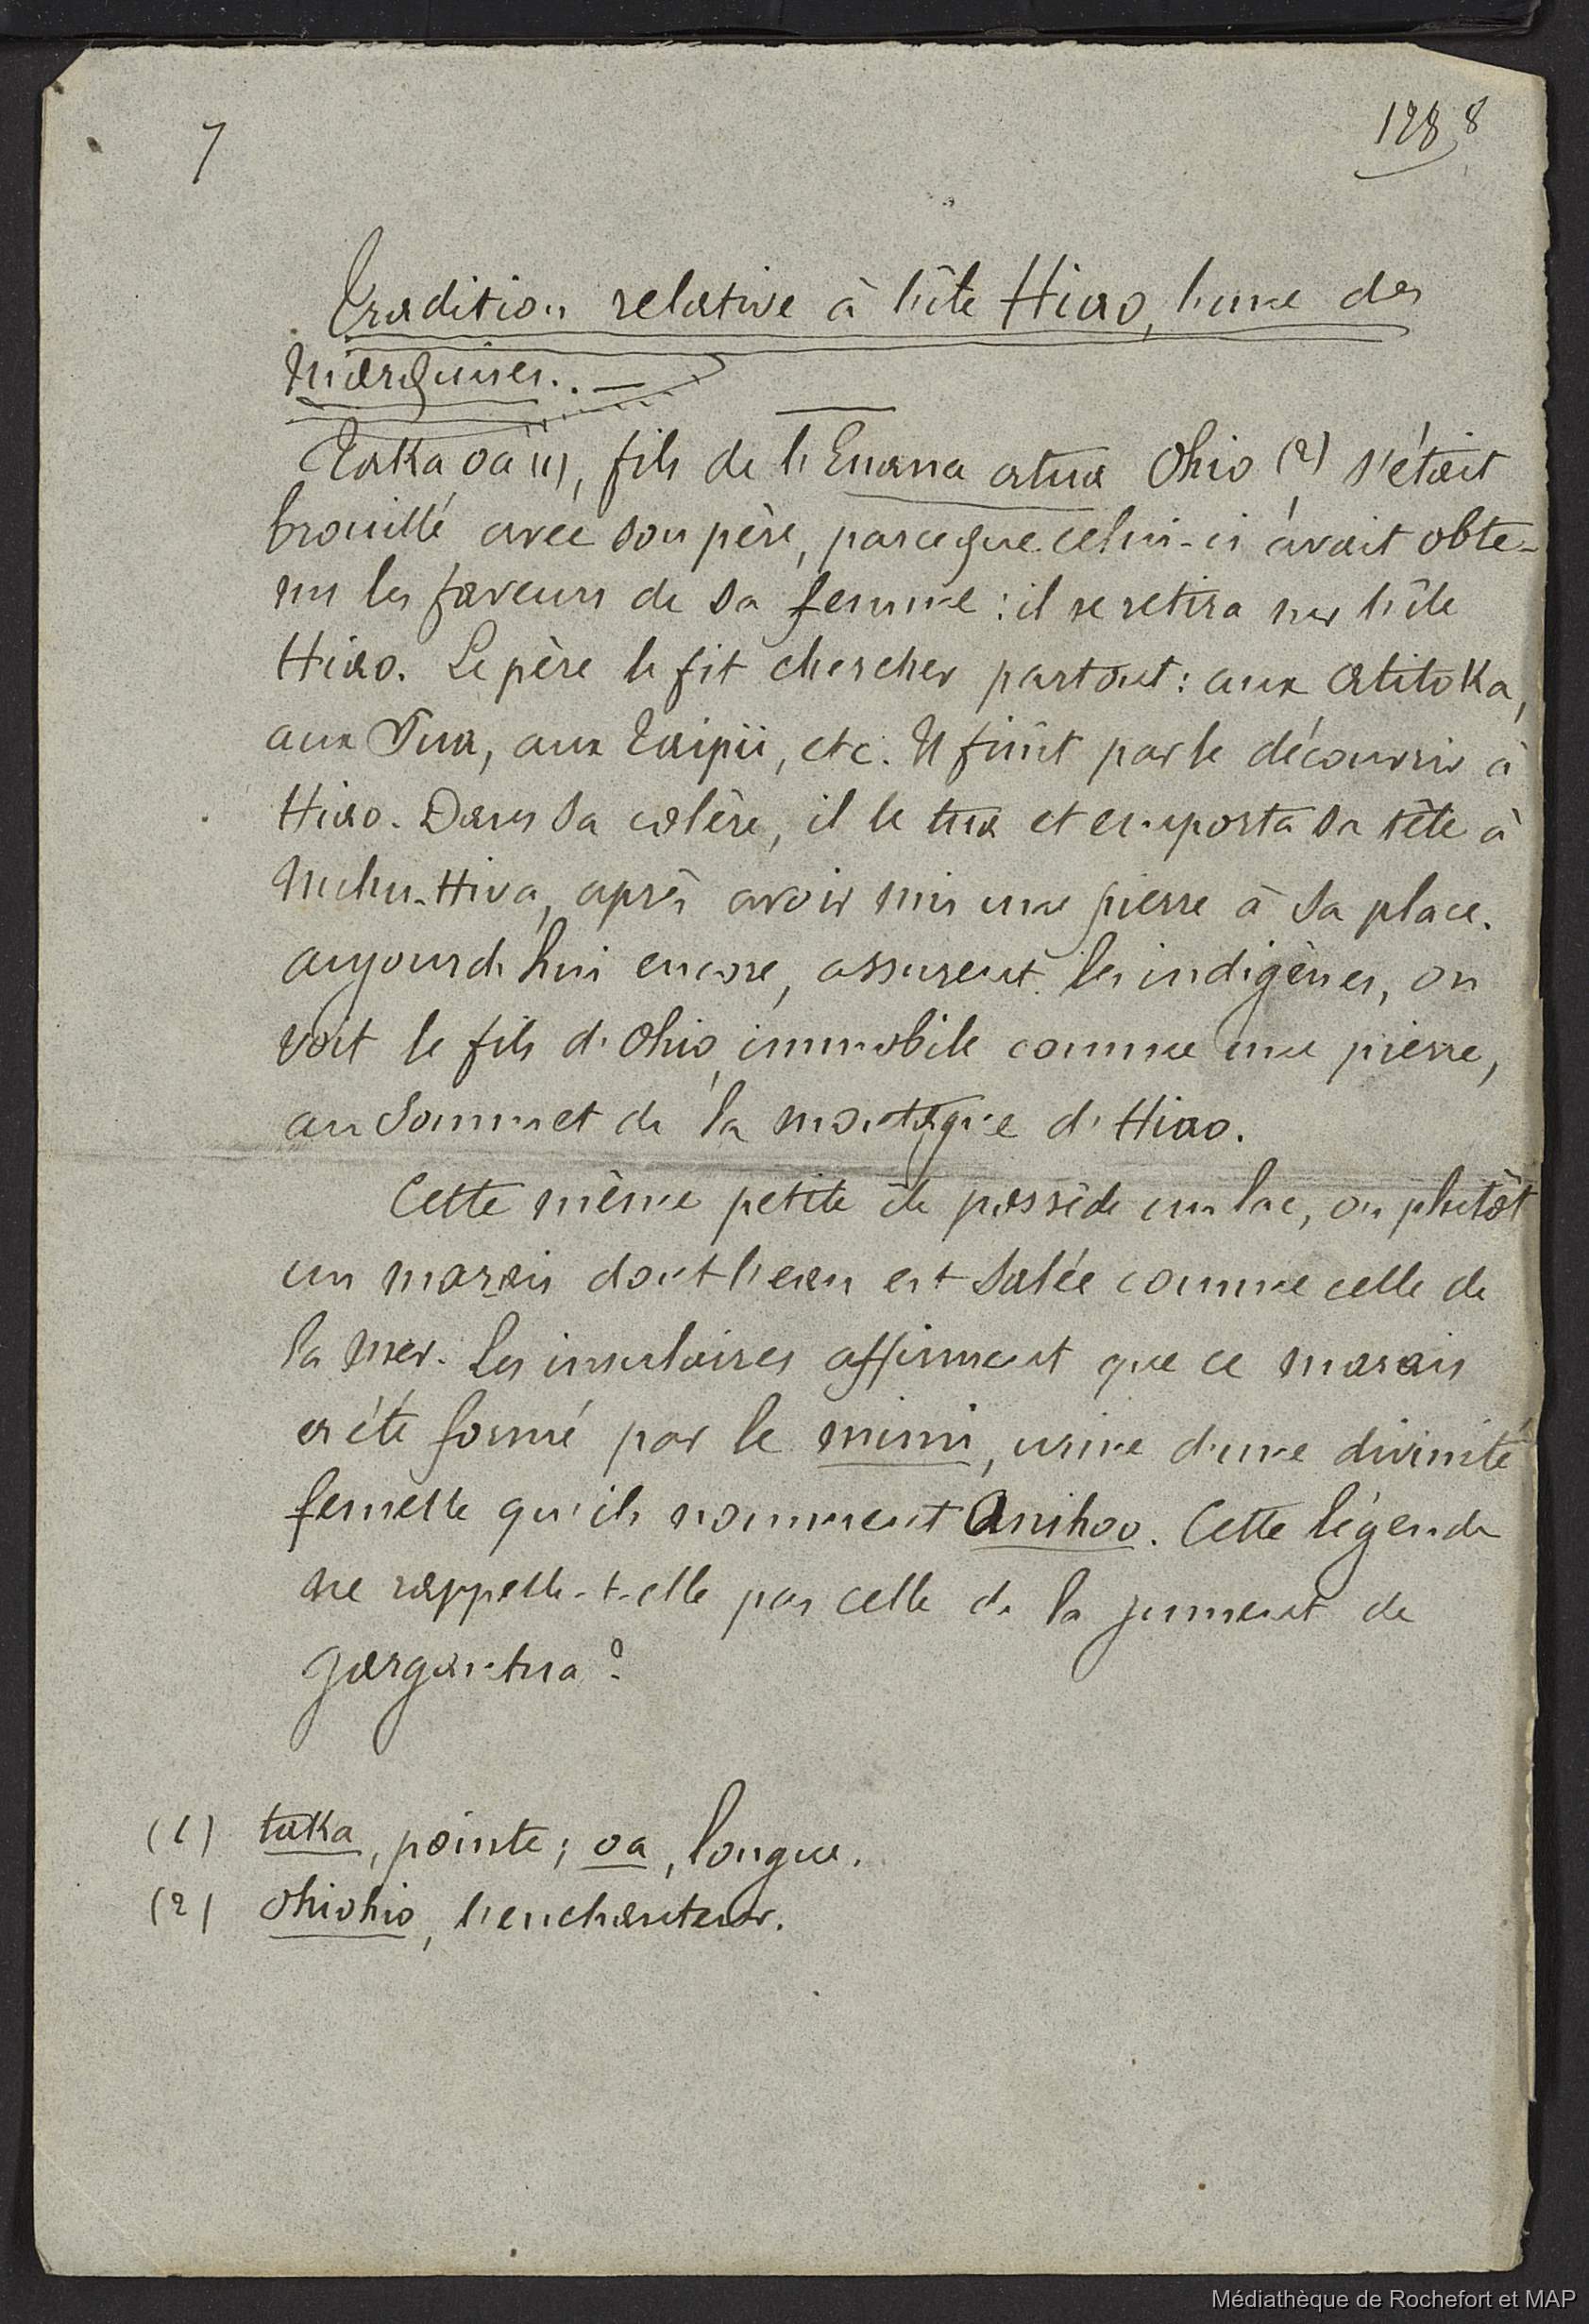 7
1288
Tradition relative à l'île Hiao, l'une des
Marquises. . —
Taka oa (1), fils de l'Enana atua Ohio (2), s'était
brouillé avec son père, parceque celui-ci avait obte-
nu les faveurs de sa femme : il se retira sur l'île
Hiao. Le père le fit chercher partout : aux Atitoka,
aux Tua, aux Taipii, etc. Il finit par le découvrir à
Hiao. Dans sa colère, il le tua et emporta sa tête à
Nuku-Hiva, après avoir mis une pierre à sa place.
aujourd'hui encore, assurent les indigènes, on
voit le fils d'Ohio, immobile comme une pierre,
au sommet de la montagne d'Hiao.
Cette même petite île possède un lac, ou plutôt
un marais dont l'eau est salée comme celle de
la mer. Les insulaires affirment que ce marais
a été formé par le mimi, urine d'une divinité
femelle qu'ils nomment Anihoo. Cette légende
ne rappelle-t-elle pas celle de la jument de
gargantua ?
(1) taka, pointe ; oa, longue.
(2) ohiohio, l'enchanteur.
Médiathèque de Rochefort et MAP